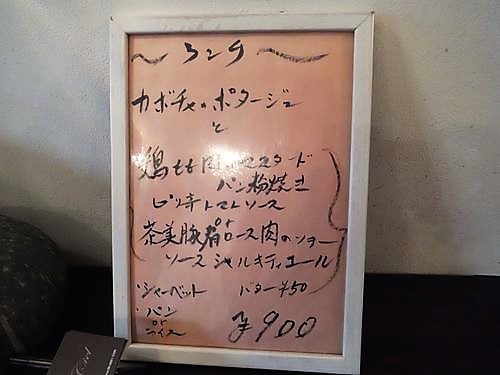 ～ランチ～
カボチャのポタージュ
と
鶏もも肉のマスタード
パン粉焼き
ピリ辛トマトソース
or
茶美豚肩ロース肉のソテー
ソースシャルキティエール
・シャーベット バター¥50
・パン
or
ライス
¥900